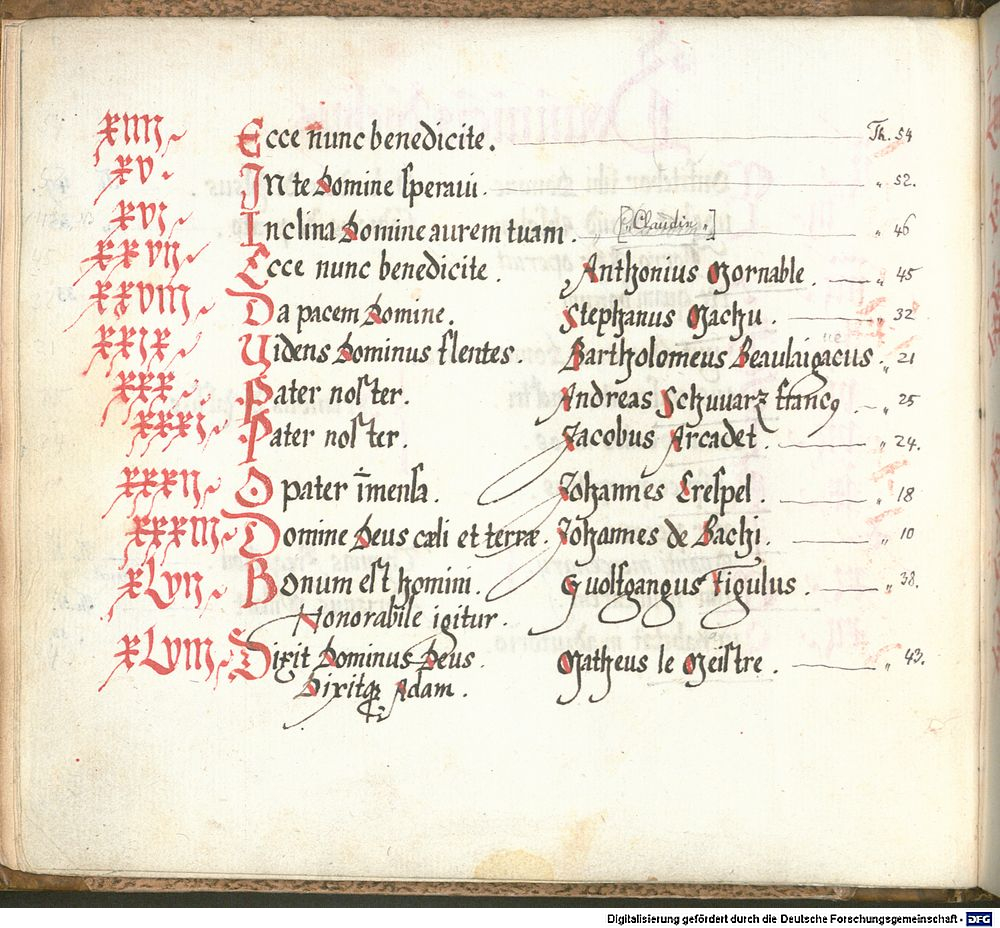 XIIII Ecce nunc benedicite. Th. 54
XV. In te Domine speraui. " 52.
XVI Inclina Domine aurem tuam. ["Claudin"] " 46
XXVII Ecce nunc benedicite. Anthonius Mornable. " 45
XXVIII Da pacem Domine. Stephanus Machu. " 32
XXIX Videns Dominus flentes. Bartholomeus Beaulaigacus. " 21
XXX Pater noster. Andreas Schuuarz francꝯ. " 25
XXXI Pater noster. Jacobus Arcadet. " 24.
XXXII O pater īmensa. Johannes Crespel. " 18
XXXIII Domine Deus cæli et terræ. Johannes de Bachi. " 10
XLVII Bonum est homini. Guolfgangus Figulus. " 38.
Honorabile igitur.
XLVIII Dixit Dominus Deus. Matheus le Meistre. " 43.
Dixitqꝫ Adam.
Digitalisierung gefördert durch die Deutsche Forschungsgemeinschaft - DFG